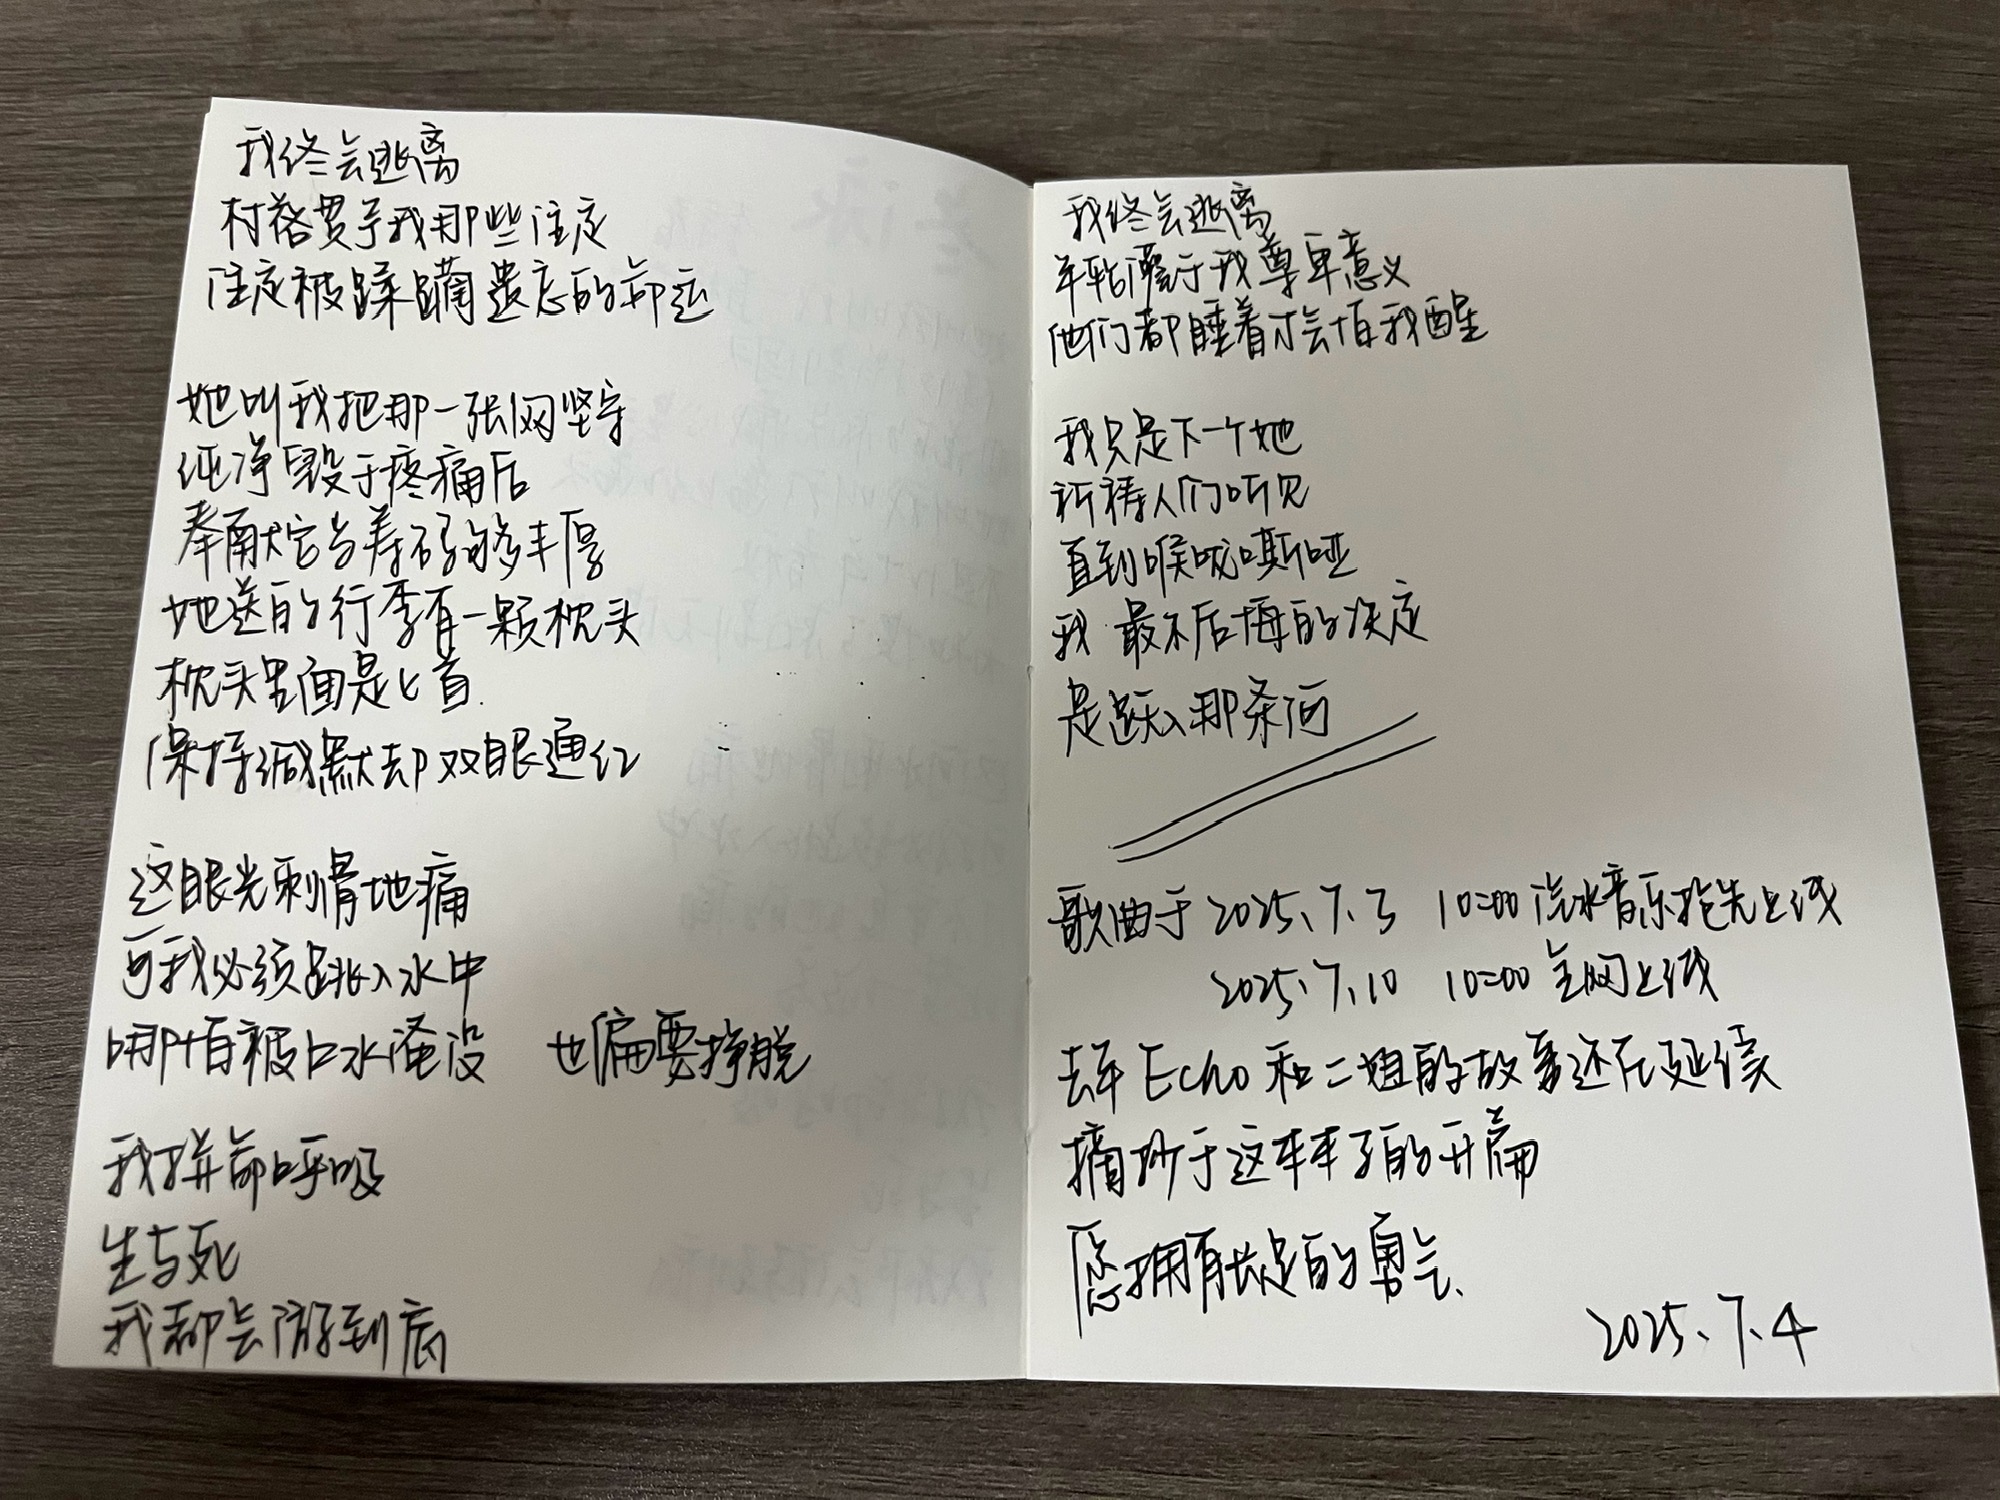 我终会逃离
村落贯予我那些注定
注定被蹂躏遗忘的命运
她叫我把那一张网坚守
纯净毁于疼痛后
奉献它当筹码够丰厚
她送的行李有一颗枕头
枕头里面是匕首
保持缄默却双眼通红
这眼光刺骨地痛
可我必须跳入水中
哪怕被口水淹没 也偏要挣脱
我拼命呼吸
生与死
我都会游到底
我终会逃离
年轮于我尊卑意义
他们都睡着才会怕我醒
我只是下一个她
祈祷人们听见
直到喉咙嘶哑
我最不后悔的决定
是跃入那条河
歌曲于2025.7.3 10:00汽水音乐抢先上线
2025.7.10 10:00全网上线
去年Echo和二姐的故事还在延续
摘抄于这本本子的开篇
愿拥有长足的勇气.
2025.7.4